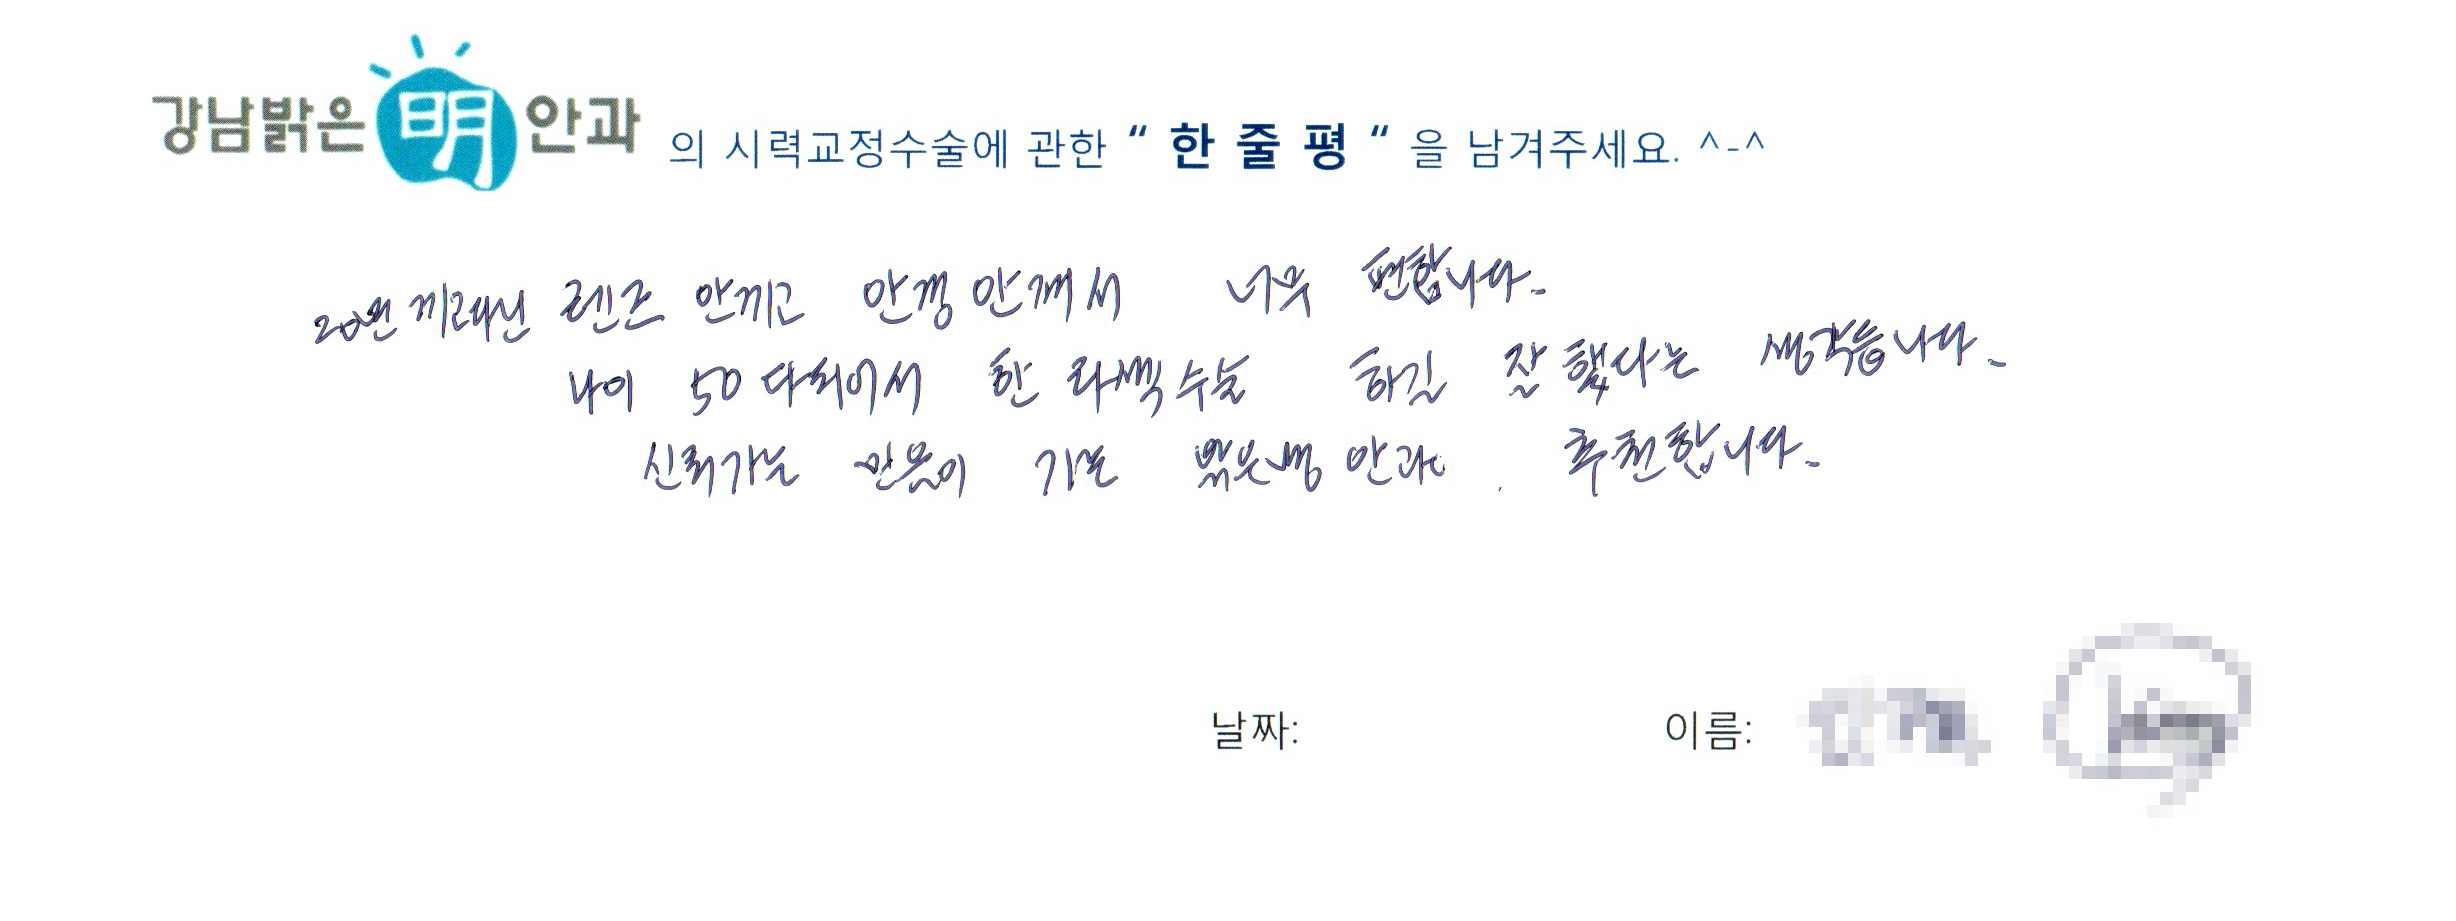 강남밝은明안과 의 시력교정수술에 관한 “ 한 줄 평 “ 을 남겨주세요. ^-^
20년 끼고다닌 렌즈 안끼고 안경 안껴서 너무 편합니다.
나이 50 다되어서 한 라섹수술 하길 잘 했다는 생각듭니다.
신뢰가는 믿음이 가는 밝은명 안과. 추천합니다.
날짜: 이름: